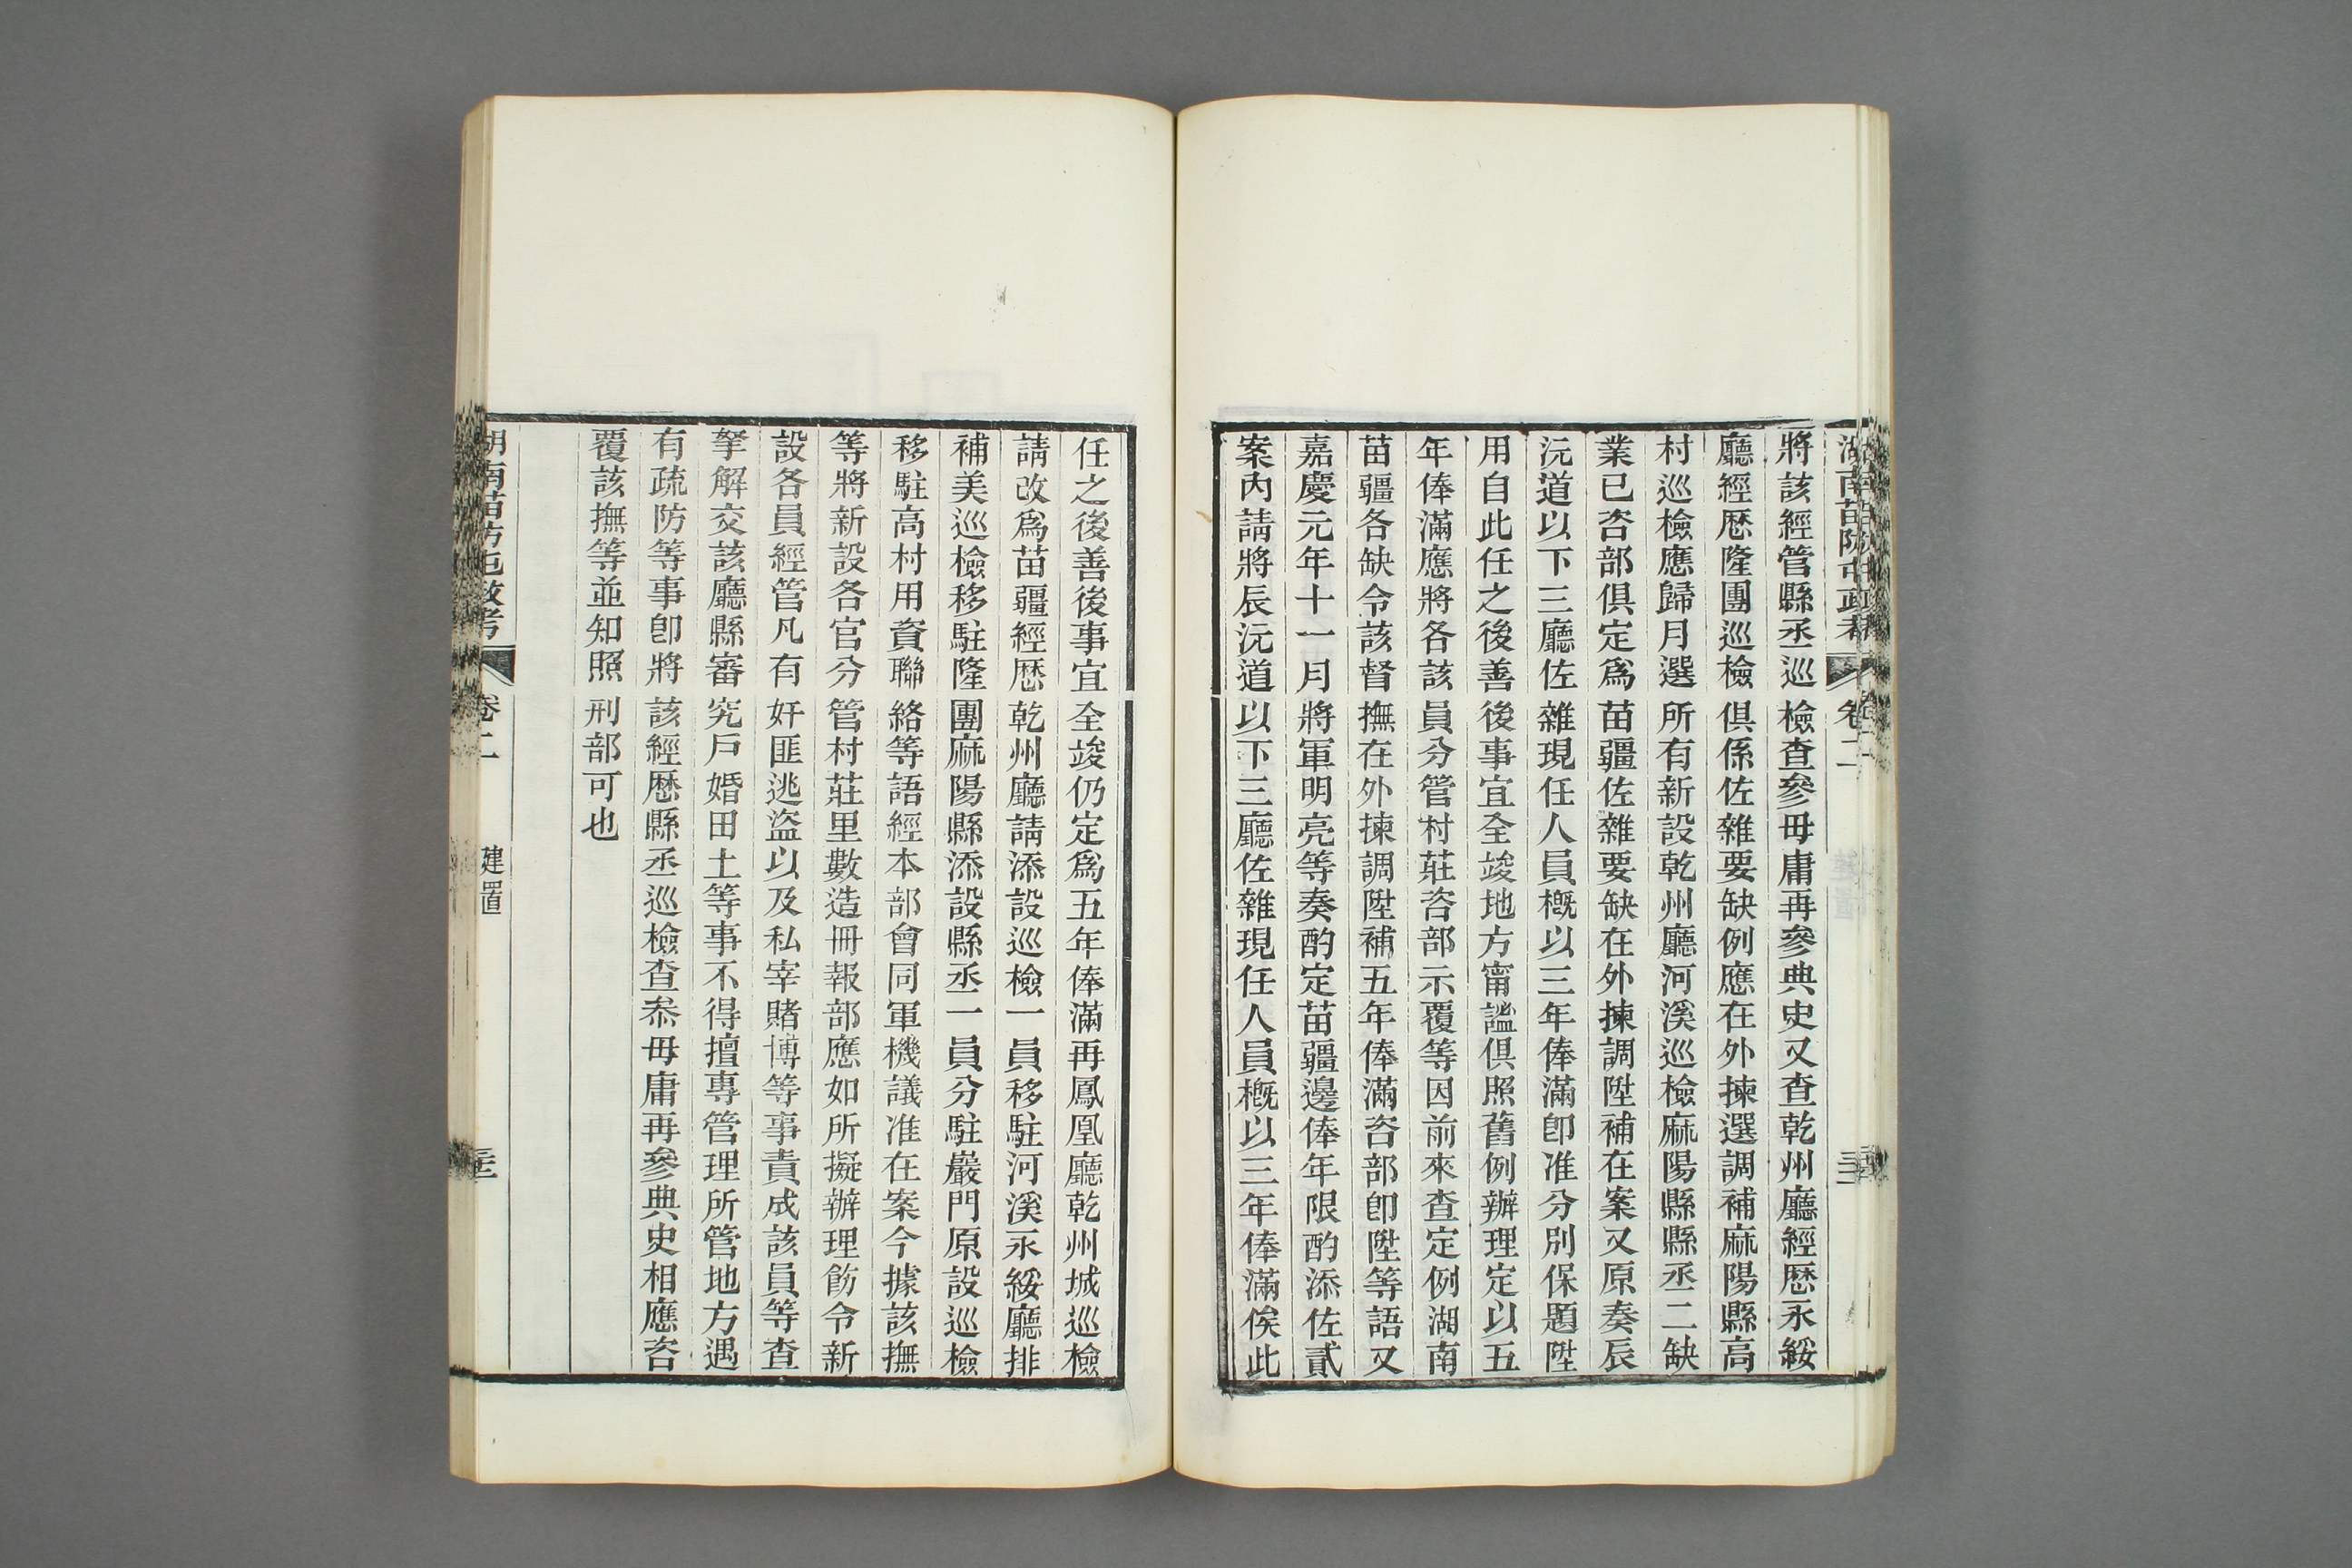 湖南苗防屯政考
卷二
將該經管縣丞巡檢查參毋庸再參典史又查乾州廳經歷永綏
廳經歷隆團巡檢俱係佐雜要缺例應在外揀選調補麻陽縣高
村巡檢應歸月選所有新設乾州廳河溪巡檢麻陽縣縣丞二缺
業已咨部俱定爲苗疆佐雜要缺在外揀調陞補在案又原奏辰
沅道以下三廳佐雜現任人員概以三年俸滿卽准分別保題陞
用自此任之後善後事宜全竣地方甯謐俱照舊例辦理定以五
年俸滿應將各該員分管村莊咨部示覆等因前來查定例湖南
苗疆各缺令該督撫在外揀調陞補五年俸滿咨部卽陞等語又
嘉慶元年十一月將軍明亮等奏酌定苗疆邊俸年限酌添佐貳
案內請將辰沅道以下三廳佐雜現任人員概以三年俸滿俟此
任之後善後事宜全竣仍定爲五年俸滿再鳳凰廳乾州城巡檢
請改爲苗疆經歷乾州廳請添設巡檢一員移駐河溪永綏廳排
補美巡檢移駐隆團麻陽縣添設縣丞一員分駐巖門原設巡檢
移駐高村用資聯絡等語經本部會同軍機議准在案今據該撫
等將新設各官分管村莊里數造冊報部應如所擬辦理飭令新
設各員經管凡有奸匪逃盜以及私宰賭博等事責成該員等查
拏解交該廳縣審究戶婚田土等事不得擅專管理所管地方遇
有疏防等事卽將該經歷縣丞巡檢查叅毋庸再參典史相應咨
覆該撫等並知照刑部可也
湖南苗防屯政考
卷二
建置